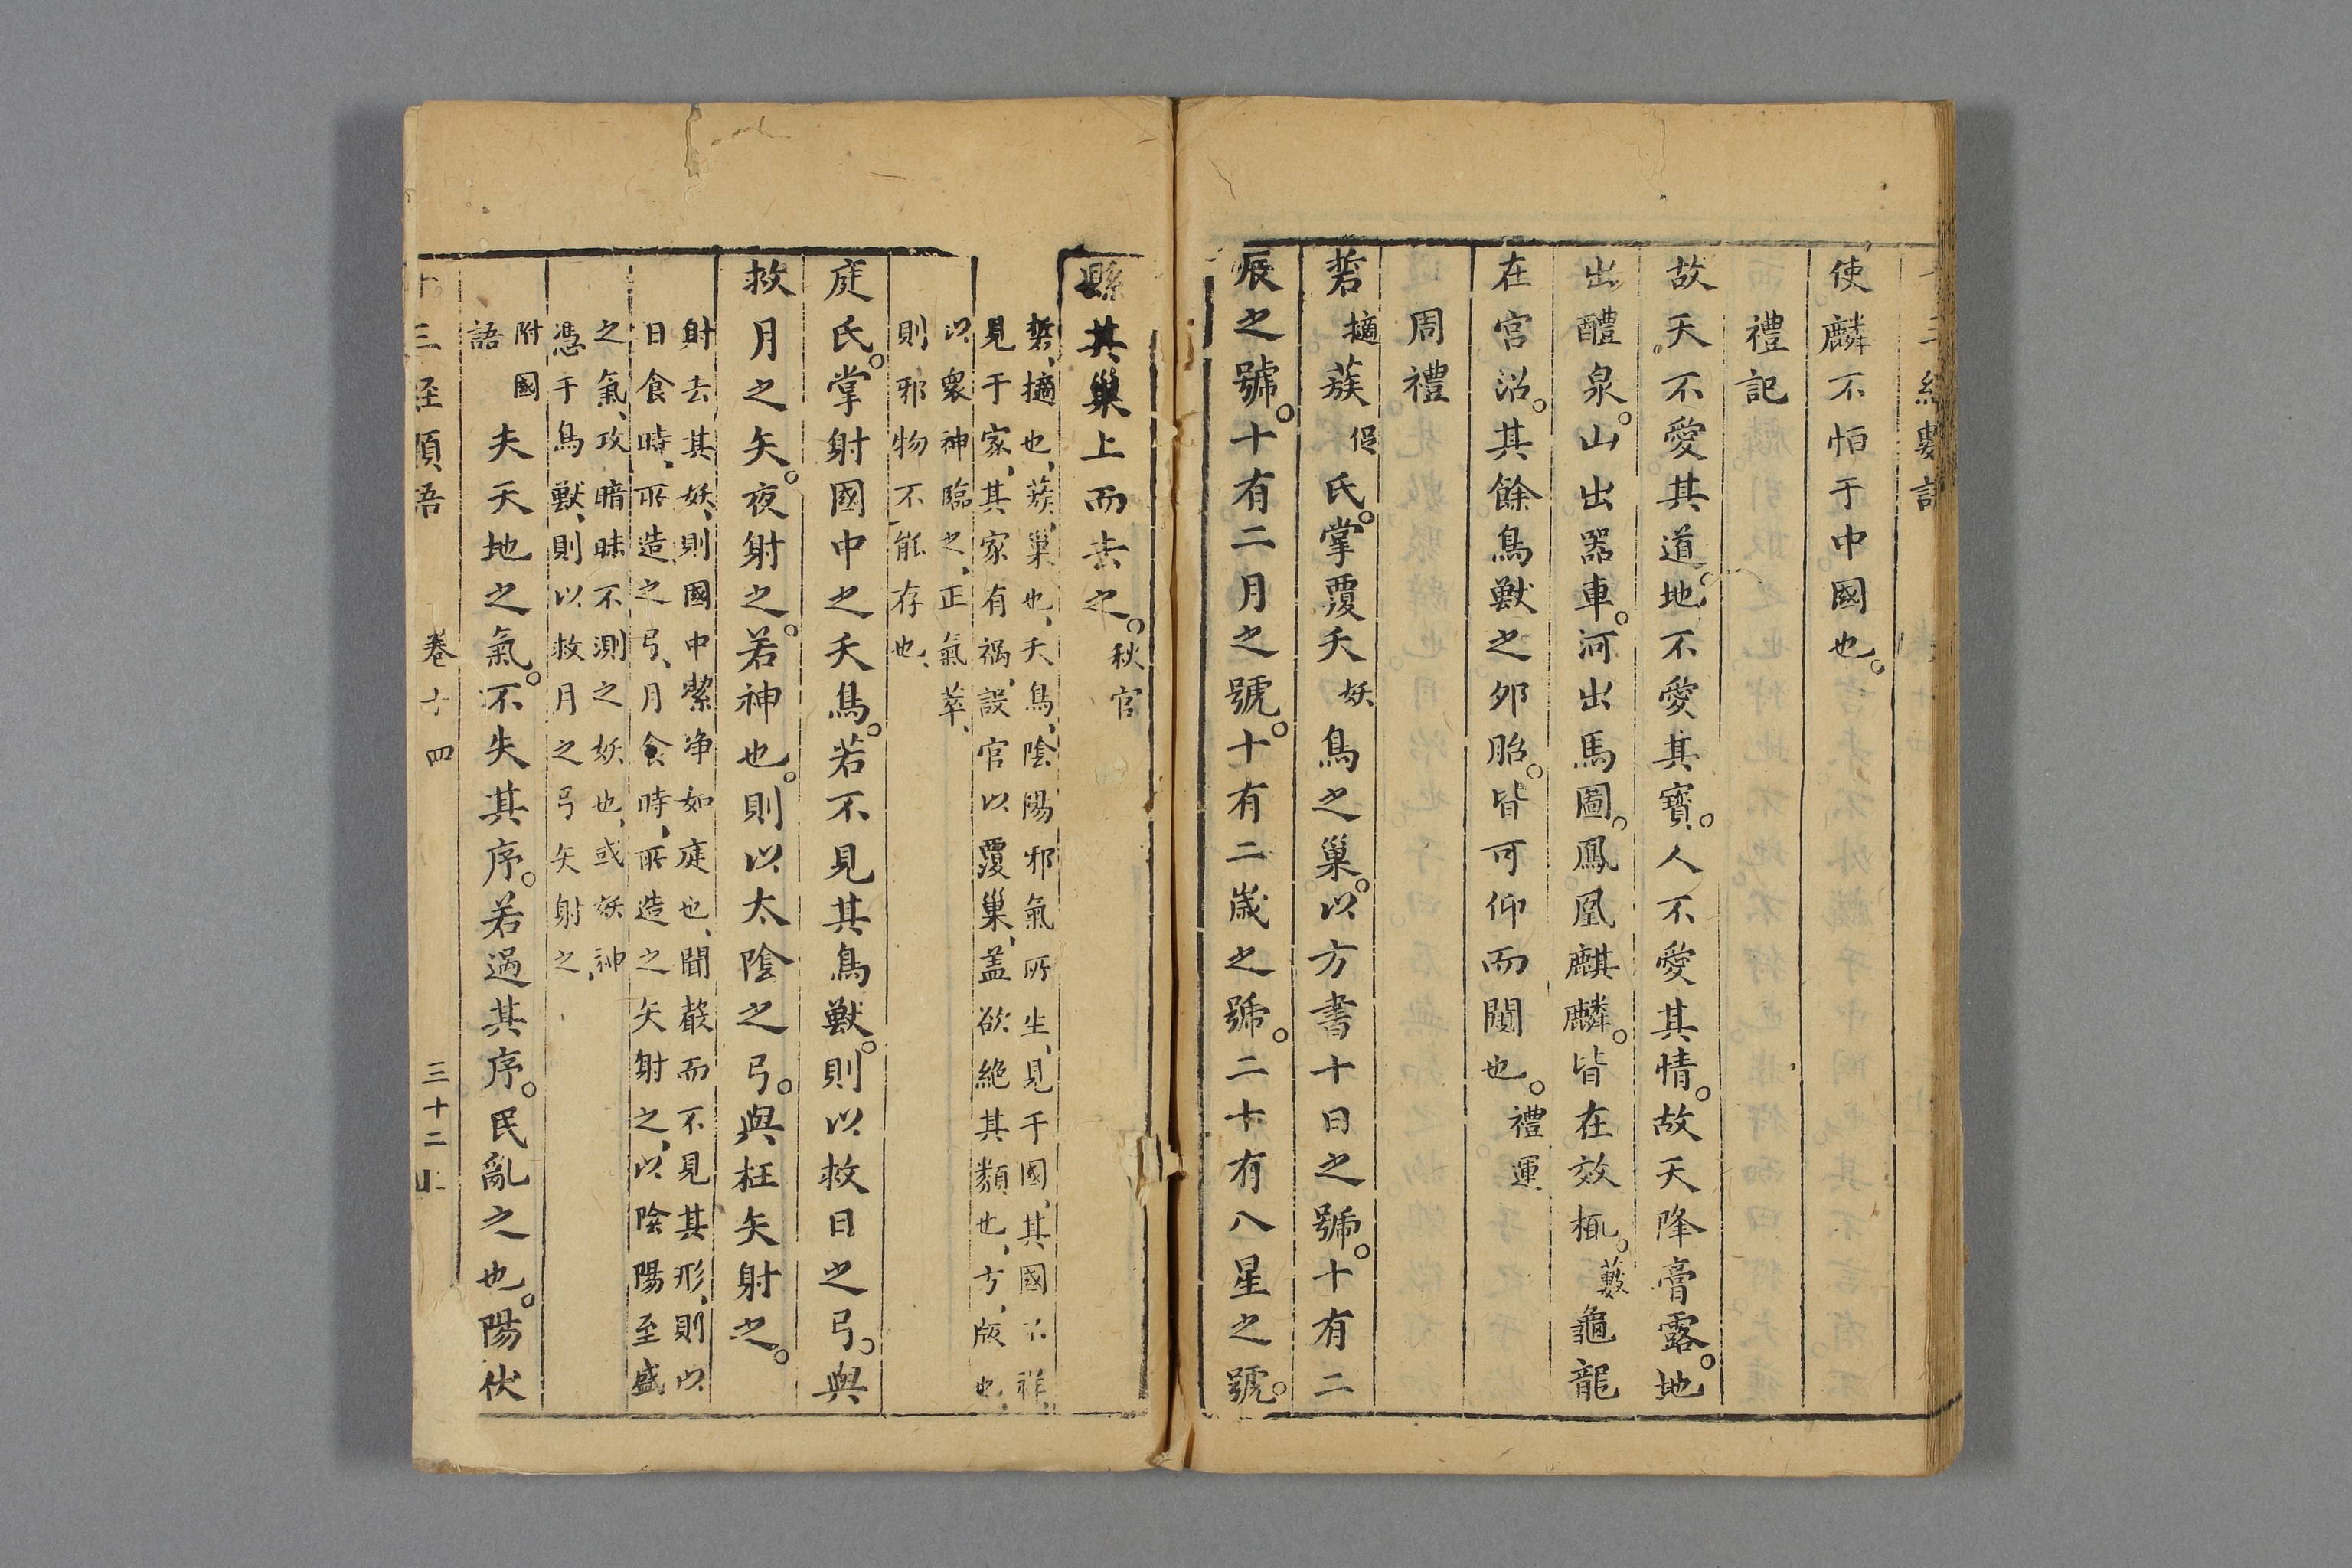 使麟不怕于中國也。
禮記
故天不愛其道。地不愛其寶。人不愛其情。故天降膏露。地
出醴泉。山出器車。河出馬圖。鳳凰麒麟。皆在效棷。藪龜龍
在宮沼。其餘鳥獸之夘胎。皆可仰而闚也。禮運
周禮
硩摘蔟侶氏。掌覆夭妖鳥之巢。以方書十日之號。十有二
辰之號。十有二月之號。十有二歲之號。二十有八星之號。
縣其巢上而去之。秋官
硩、擿也、蔟、巢也、夭鳥、陰陽邪氣所生、見于國、其國不祥、
見于家、其家有禍、設官以覆巢、盖欲絶其類也、方、版也、
以衆神臨之、正氣萃、
則邪物不能存也、
庭氏。掌射國中之夭鳥。若不見其鳥獸。則以救日之弓。與
救月之矢。夜射之。若神也。則以太陰之弓。與枉矢射之。
射去其妖、則國中㓗净如庭也、聞聲而不見其形、則以
日食時、所造之弓、月食時、所造之矢射之、以陰陽至盛
之氣、攻暗昧不測之妖也、或妖神、
憑于鳥獸、則以救月之弓矢射之、
附國語 夫天地之氣。不失其序。若過其序。民亂之也。陽伏
三經類語 卷十四 三十二